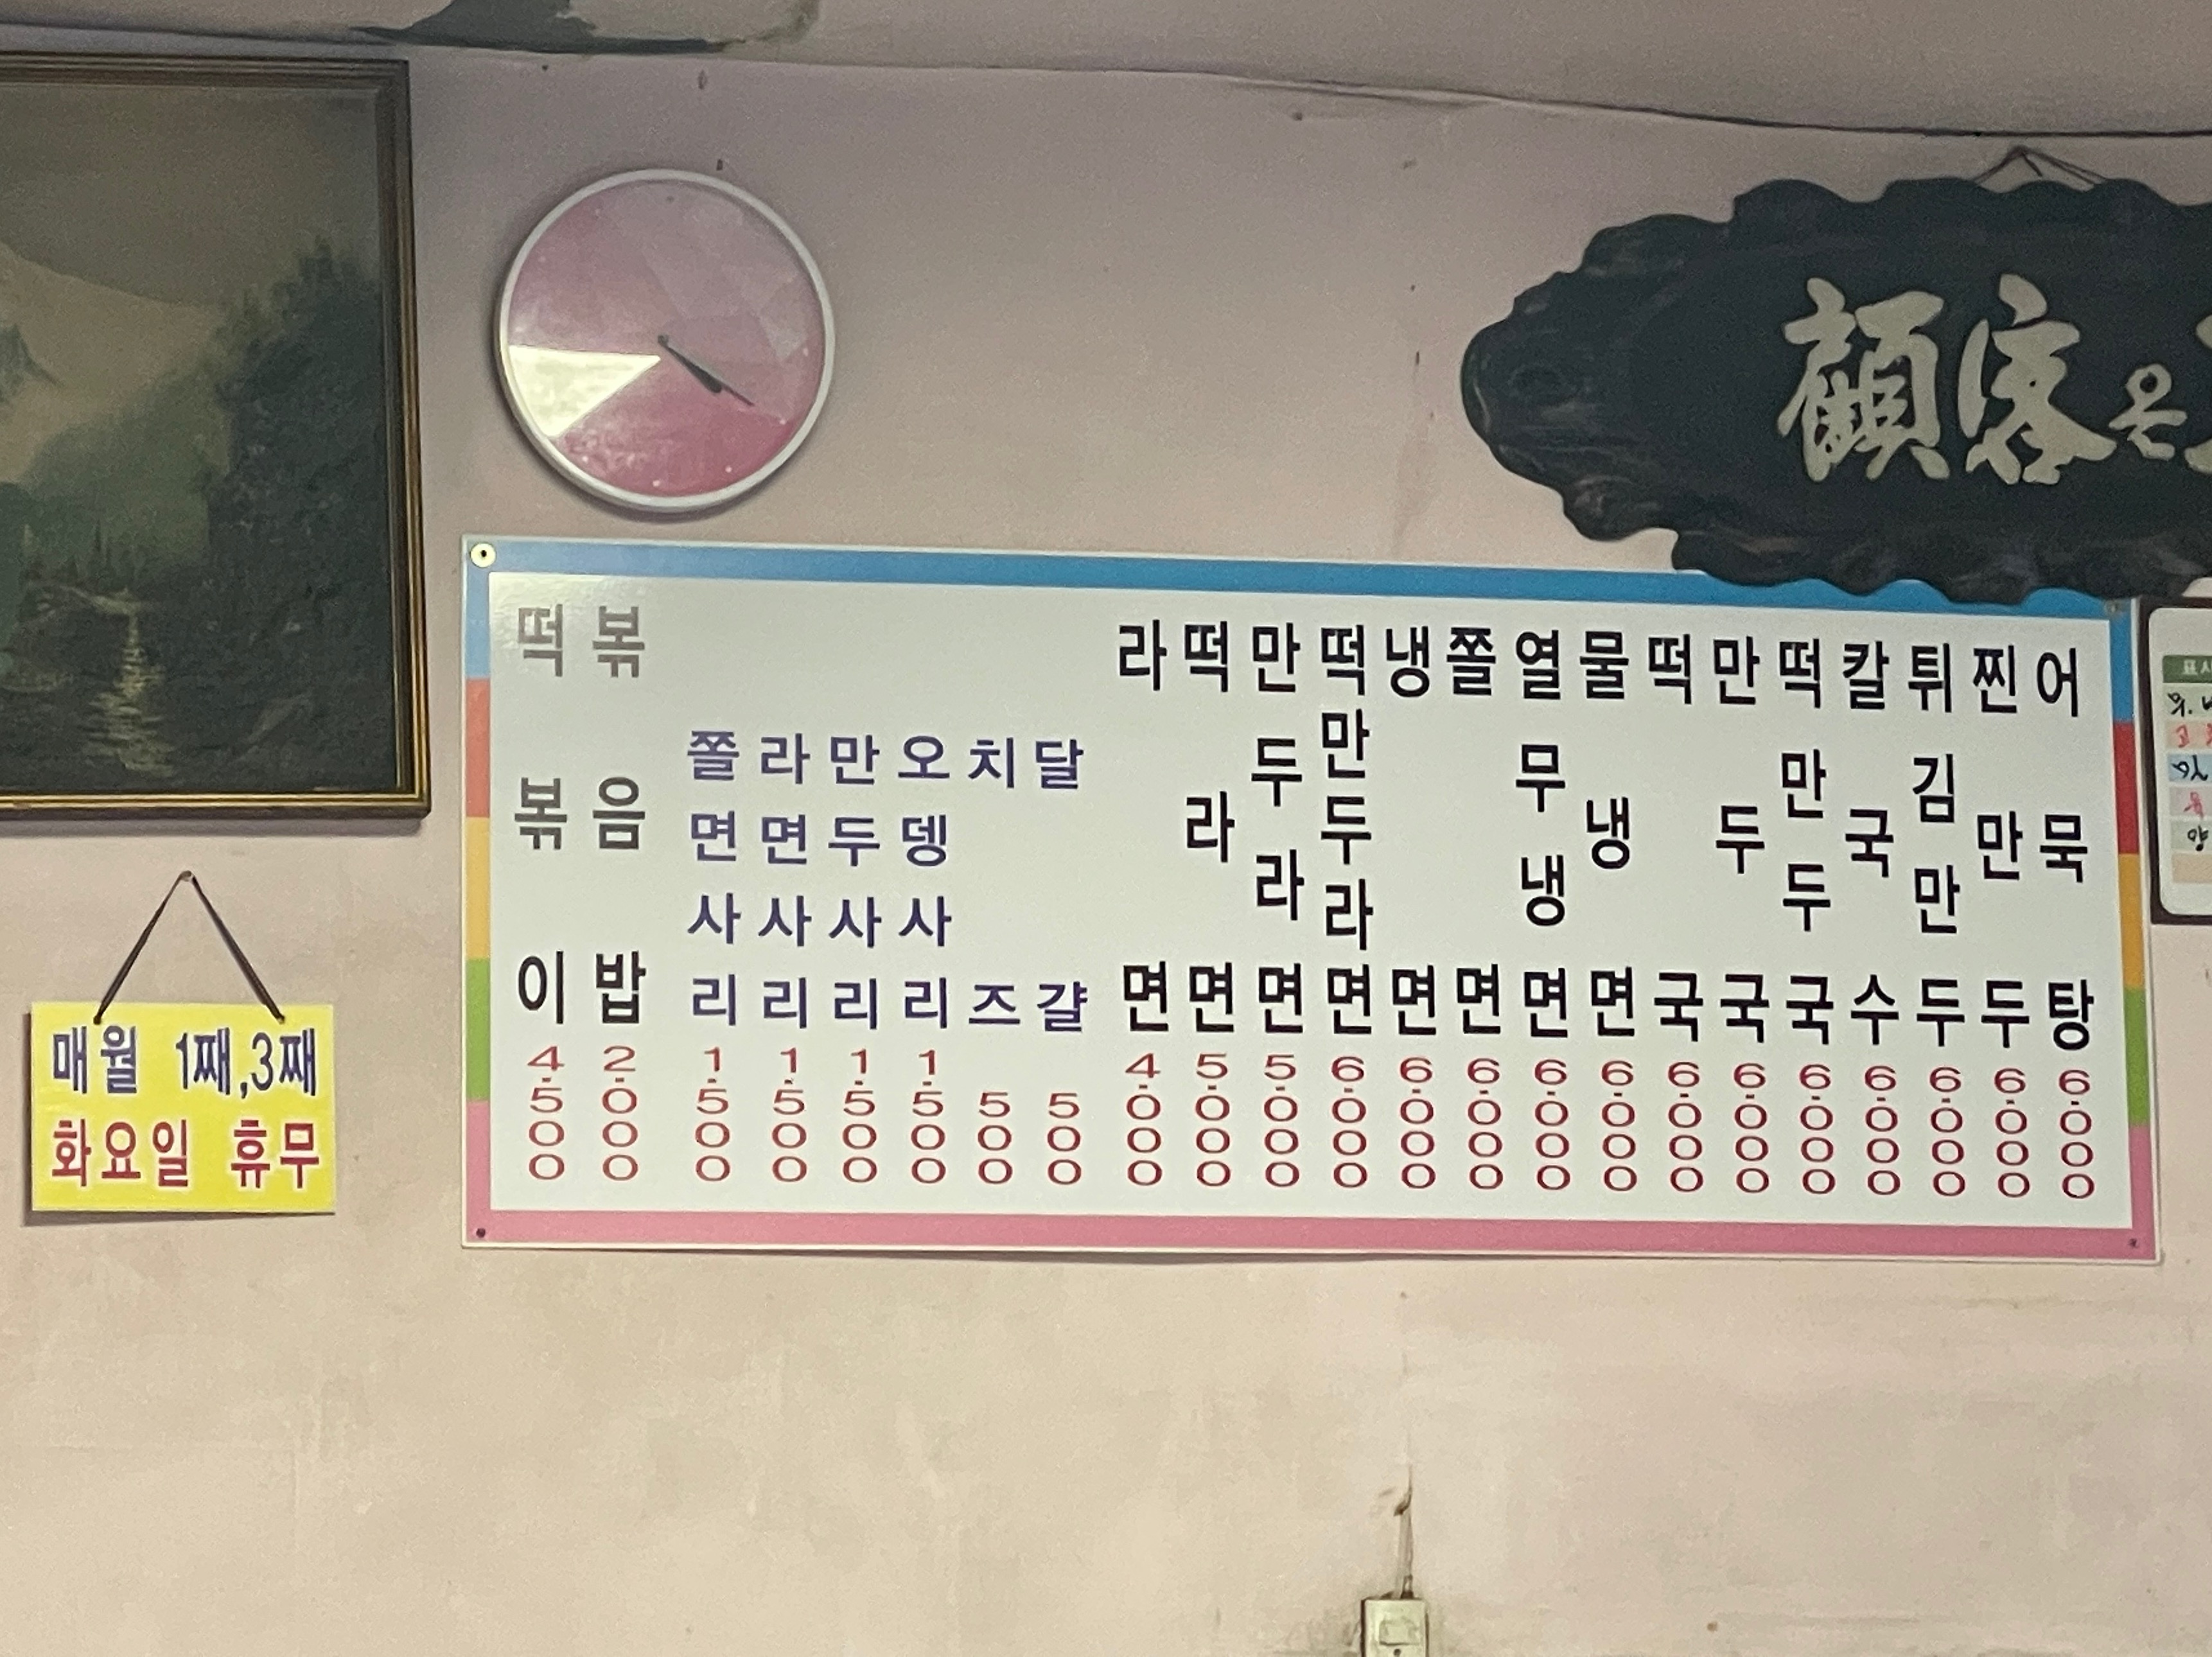 顧客은
떡볶이 4.500
볶음밥 2.000
쫄면사리 1.500
라면사리 1.500
만두사리 1.500
오뎅사리 1.500
치즈 500
달걀 500
라면 4.000
떡라면 5.000
만두라면 5.000
떡만두라면 6.000
냉면 6.000
쫄면 6.000
열무냉면 6.000
물냉면 6.000
떡국 6.000
만두국 6.000
떡만두국 6.000
칼국수 6.000
튀김만두 6.000
찐만두 6.000
어묵탕 6.000
매월 1째,3째
화요일 휴무